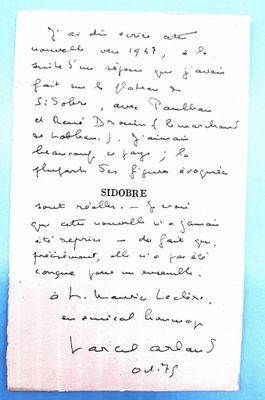 J'ai dû écrire cette
nouvelle vers 1947, à la
suite d'un séjour que j'avais
fait sur le plateau de
Sidobre, avec Paulhan
et René Drouin (le marchand
de tableaux). J'aimais
beaucoup ce pays ; la
plupart des figures évoquées
SIDOBRE
sont réelles. — Je crois
que cette nouvelle n'a jamais
été reprise — du fait que,
précisément, elle n'a pas été
conçue pour un ensemble.
à M. Maurice Leclère.
en amical hommage
Marcel Arland
Oct. 75